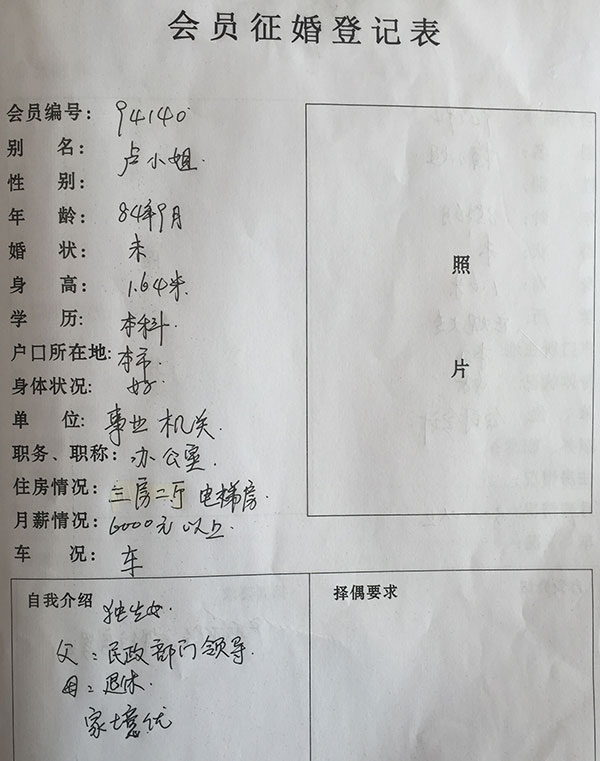 会员征婚登记表
会员编号：94140
别 名：卢小姐.
性 别：
年 龄：84年9月
婚 状：未
身 高：1.64米.
学 历：本科.
户口所在地：本市.
身体状况：好.
单 位：事业机关.
职务、职称：办公室.
住房情况：三房二厅 电梯房.
月薪情况：6000元以上.
车 况：车
照
片
自我介绍 独生女.
父：民政部门领导.
母：退休.
家境优
择偶要求